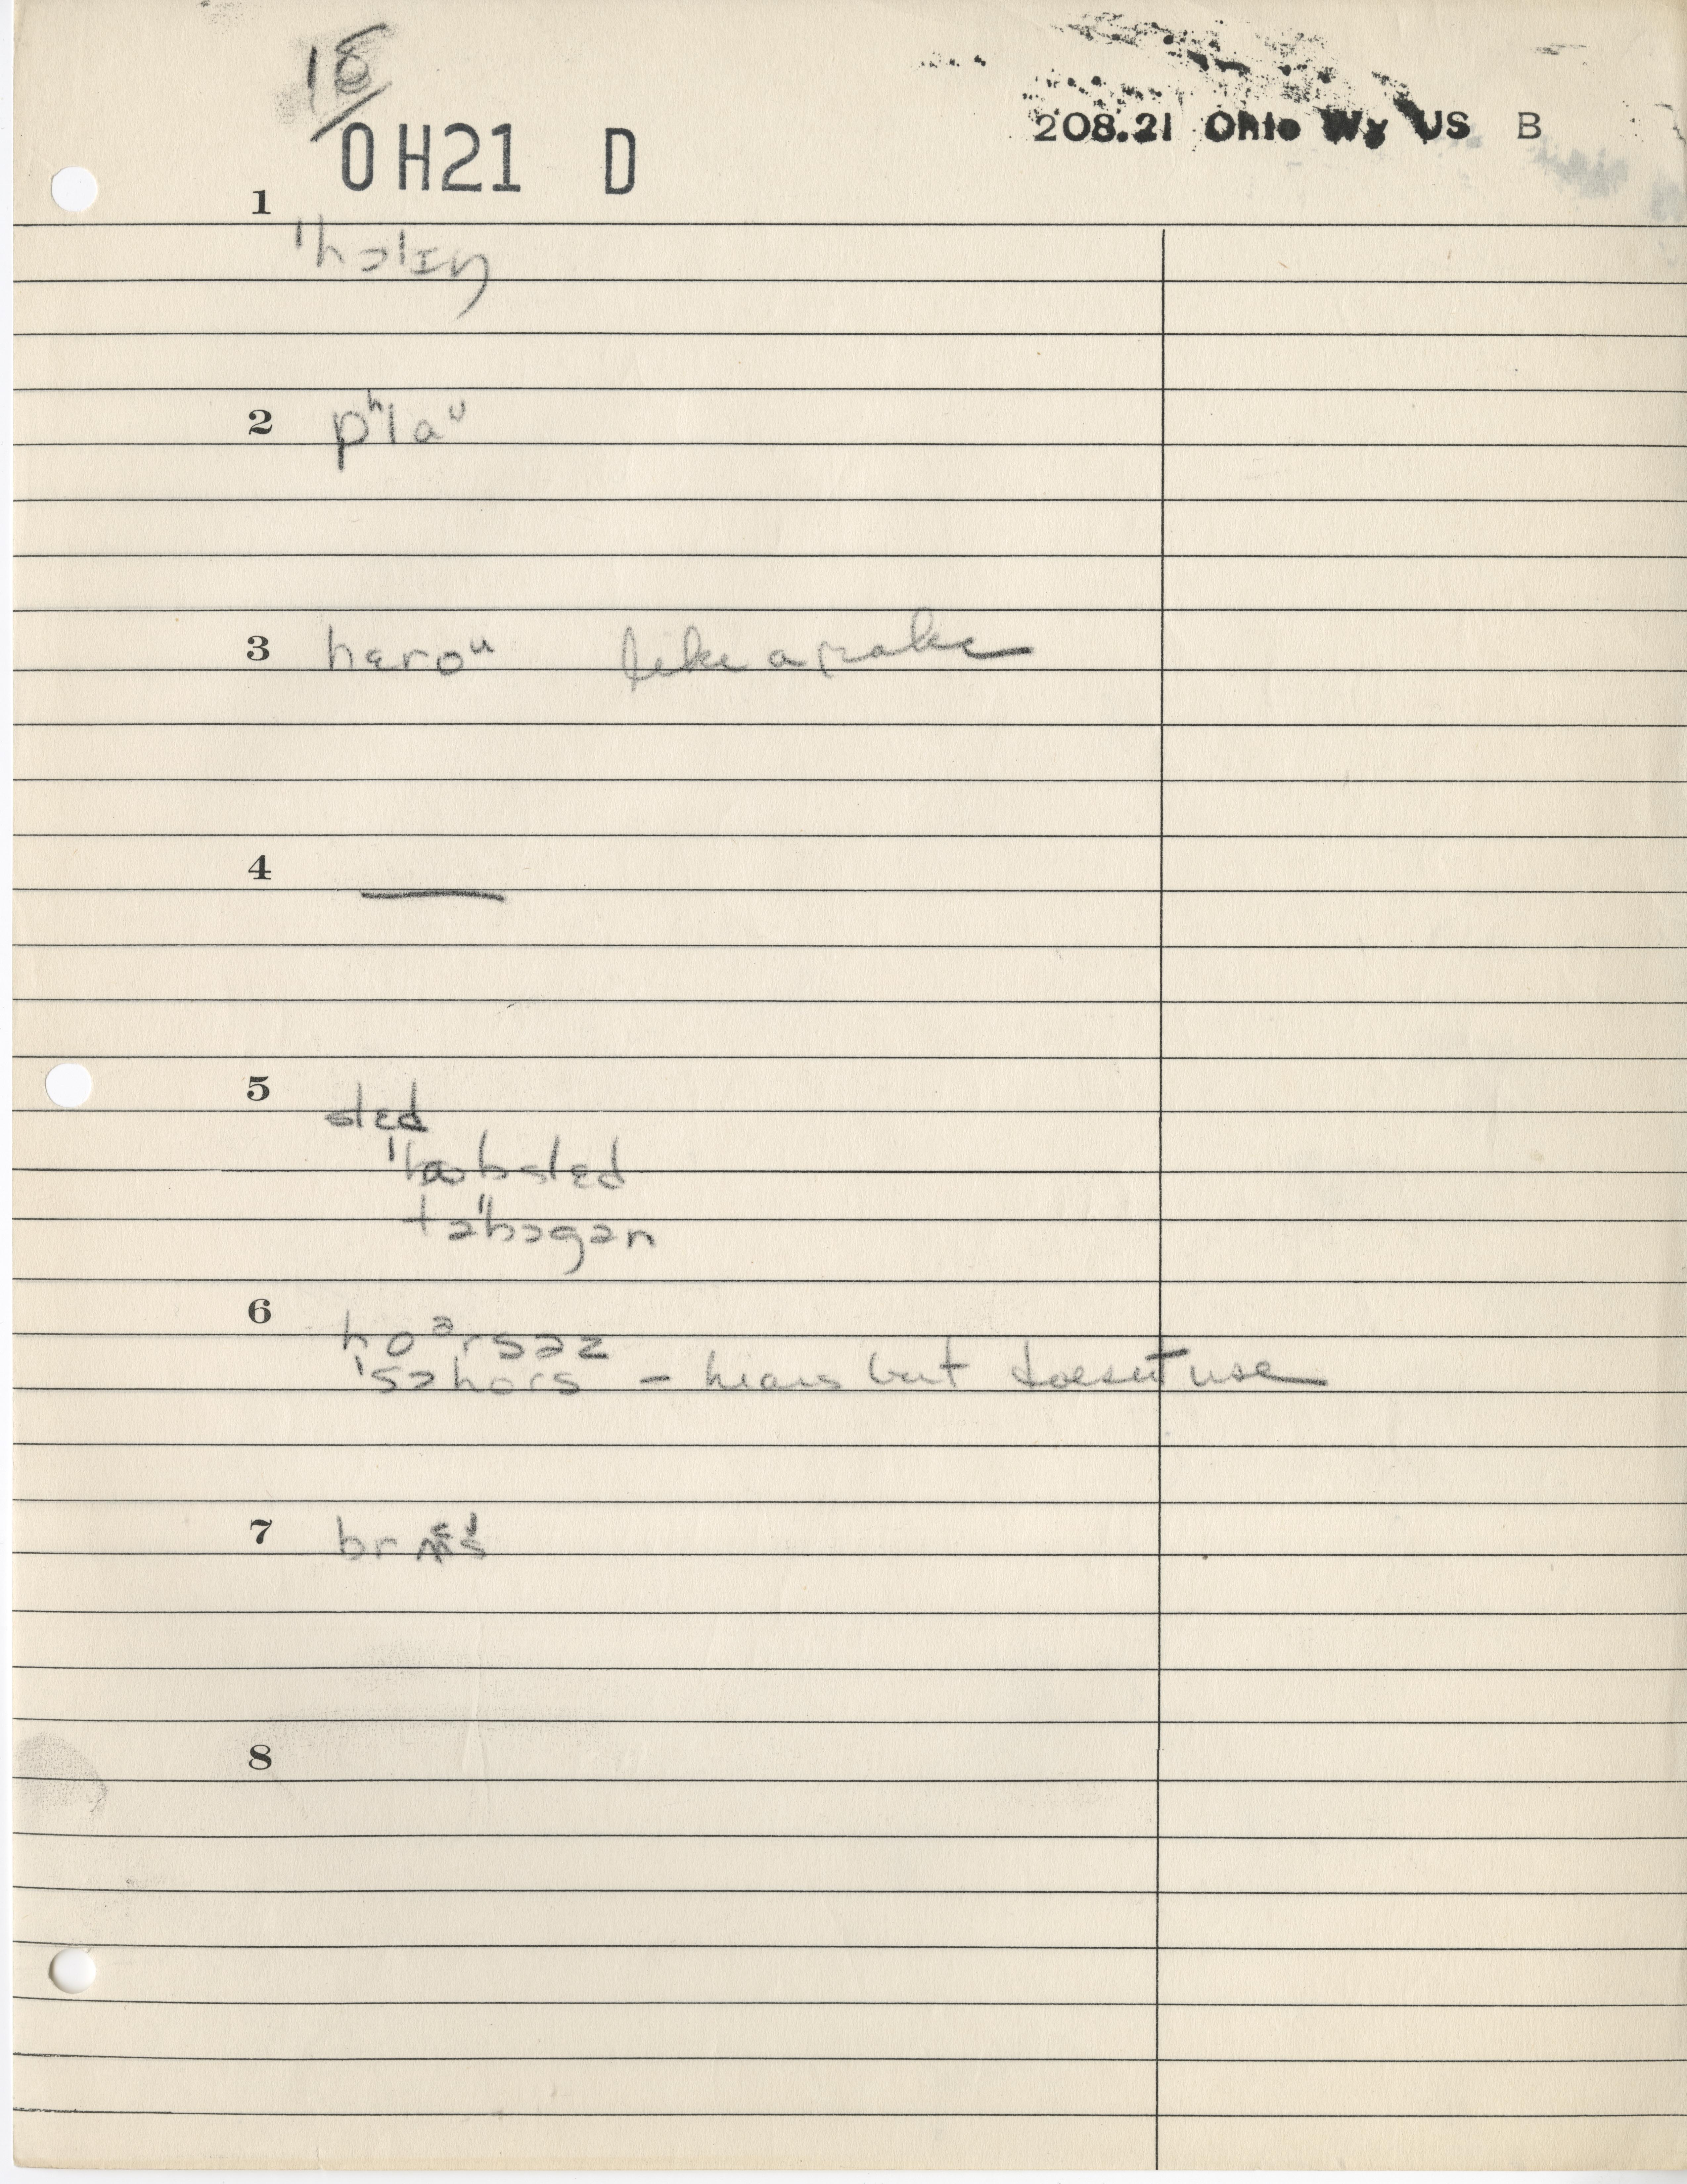 18
OH21 D
208.21 Ohio Wy US B
1
ˈhɔlɪŋ
2 pʰlaᵘ
3 hɛroᵘ like a rake
4 —
5 slɛd
ˈbɑbslɛd
təˈbɔgən
6 hoᵊrsəz
ˈsɔhors – hears but doesn't use
7 br
8